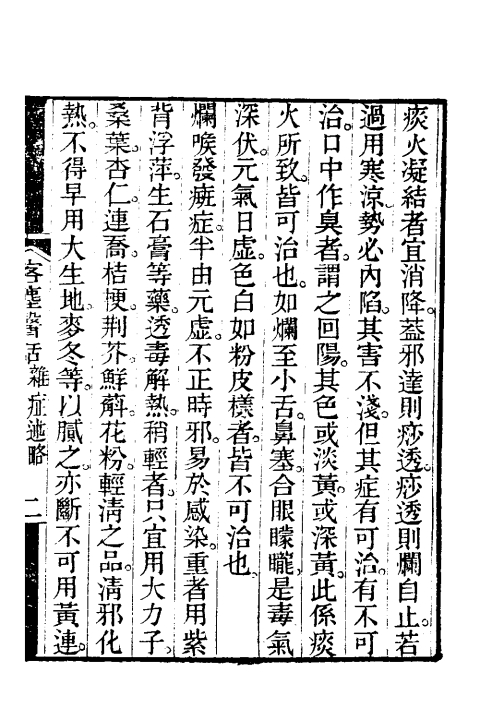 痰火凝結者宜消降。蓋邪達則痧透。痧透則爛自止若
過用寒涼。勢必內陷。其害不淺。但其症有可治。有不可
治。口中作臭者。謂之回陽。其色或淡黃。或深黃。此係痰
火所致。皆可治也。如爛至小舌。鼻塞。合眼矇矓。是毒氣
深伏。元氣日虛。色白如粉皮樣者。皆不可治也、
爛喉發痲症。半由元虛。不正時邪。易於感染。重者用紫
背浮萍。生石膏等藥。透毒解熱。稍輕者。只宜用大力子。
桑葉。杏仁。連喬。桔梗。荆芥。鮮薢。花粉。輕淸之品。淸邪化
熱。不得早用大生地。麥冬等。以膩之。亦斷不可用黃連。
客塵醫話雜症述略 二